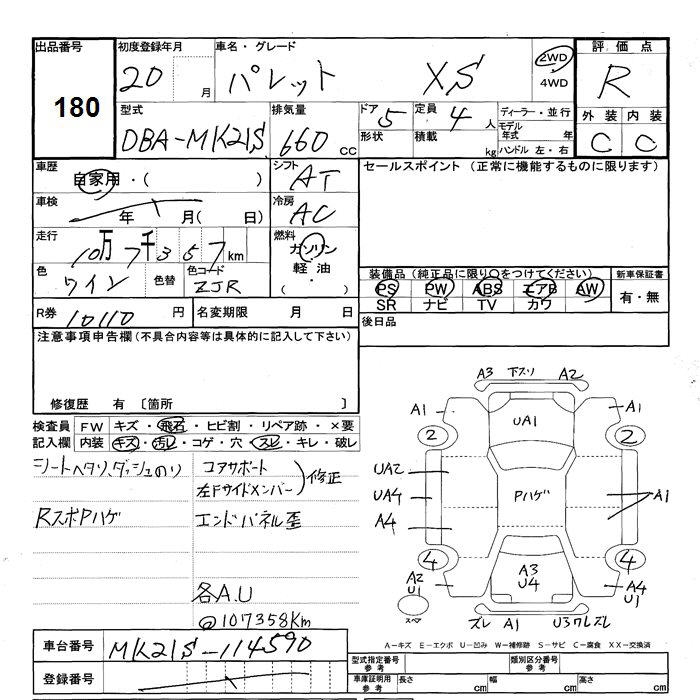 出品番号 初度登録年月 車名・グレード 評価点
180 20 月 パレット XS 2WD 4WD R
型式 排気量 ドア 5 定員 4 人 ディーラー・並行 外装 内装
DBA-MK21S 660 CC 形状 積載 kg モデル年式 年 C C
ハンドル 左・右
車歴 自家用・( ) シフト AT セールスポイント (正常に機能するものに限ります)
車検 年 月( 日) 冷房 AC
走行 10万7千357km 燃料 ガソリン 軽油 ( ・ )
色 ワイン 色替 色コード ZJR
装備品(純正品に限り○をつけてください) 新車保証書
PS PW ABS エアB AW 有・無
SR ナビ TV カワ
R券 10110 円 名変期限 月 日 後日品
注意事項申告欄(不具合内容等は具体的に記入して下さい)
修復歴 有 〔箇所 〕
検査員 FW キズ・飛石・ヒビ割・リペア跡・×要
記入欄 内装 キズ・汚レ・コゲ・穴・スレ・キレ・破レ
シートヘタリ、ダッシュのり コアサポート
左Fサイドメンバー 修正
RスポPハゲ エンドパネル歪
各A.U
@107358Km
A3 下スリ A2
A1 UA1 A1
2 2
UA2
UA4 Pハゲ A1
A4
4 4
A2 U1 A3 U4 A4 U1
スペア ズレ A1 U3ワレズレ
A-キズ E-エクボ U-凹み W-補修跡 S-サビ C-腐食 XX-交換済
車台番号 MK21S-114590 型式指定番号 参考 類別区分番号 参考
登録番号 車庫証明用 参考 長さ cm 幅 cm 高さ cm